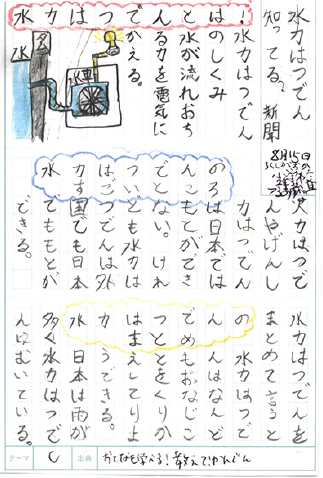 水力はつでん
知ってる？新聞
8月15日
水力はつでんとは！
水力はつでん
のしくみ
水が流れおち
る力を電気に
かえる。
水
水車
水力はつでんの
すごいところ
火力はつで
んやげんし
力はつでん
は日本では
もとができ
ない。けれ
ども水力は
つでんは外
国でも日本
でももとが
できる。
水力はつでんの
まとめ
水力はつでんを
まとめて言うと
水力はつで
んはなんど
もおなじこ
とをくりか
えしてりよ
うできる。
日本は雨が
多く水力はつで
んにむいている。
テーマ C 出典